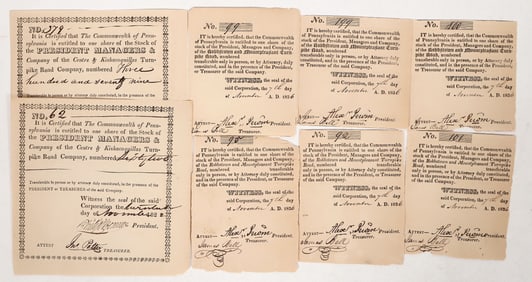 NO. 379
It is Certified that The Commonwealth of Penn-
sylvania is entitled to one share of the Stock of the
PRESIDENT MANAGERS &
Company of the Centre & Kishacoquillas Turn-
pike Road Company, numbered Three
hundred and seventy nine
NO. 62
It is Certified that The Commonwealth of Penn-
sylvania is entitled to one share of the Stock of the
PRESIDENT MANAGERS &
Company of the Centre & Kishacoquillas Turn-
pike Road Company, numbered Sixty two
Transferable in person or by attorney duly constituted, in the presence of the
PRESIDENT or TREASURER of the said Company.
Witness the seal of the said
Corporation the
day of November
President.
ATTEST
TREASURER.
No. 89
It is hereby certified, that the Commonwealth of
Pennsylvania, is entitled to one share of the
stock of the President, Managers and Company,
of the Robbstown and Mountpleasant Turn-
pike Road, numbered
transferable only in person, or by Attorney duly
constituted, and in the presence of the President,
or Treasurer of the said Company.
WITNESS, the seal of the
said Corporation, the 7th day
of November A. D. 182
Attest
President.
No. 109
It is hereby certified, that the Commonwealth of
Pennsylvania, is entitled to one share of the
stock of the President, Managers and Company,
of the Robbstown and Mountpleasant Turn-
pike Road, numbered
transferable only in person, or by Attorney duly
constituted, and in the presence of the President,
or Treasurer of the said Company.
WITNESS, the seal of the
said Corporation, the 7th day
of November A. D. 182
No. 110
It is hereby certified, that the Commonwealth of
Pennsylvania, is entitled to one share of the
stock of the President, Managers and Company,
of the Robbstown and Mountpleasant Turn-
pike Road, numbered
transferable only in person, or by Attorney duly
constituted, and in the presence of the President,
or Treasurer of the said Company.
WITNESS, the seal of the
said Corporation, the 7th day
of November A. D. 182
No.
It is hereby certified, that the Commonwealth of
Pennsylvania, is entitled to one share of the
stock of the President, Managers and Company,
of the Robbstown and Mountpleasant Turnpike
Road, numbered transferable
only in person, or by Attorney duly constituted,
and in the presence of the President, or Treasurer
of the said Company.
WITNESS, the seal of the
said Corporation, the 7th day
of November A. D. 182
Attest
President.
James Bell Treasurer.
No. 92
It is hereby certified, that the Commonwealth of
Pennsylvania, is entitled to one share of the
stock of the President, Managers and Company,
of the Robbstown and Mountpleasant Turnpike
Road, numbered transferable
only in person, or by Attorney duly constituted,
and in the presence of the President, or Treasurer
of the said Company.
WITNESS, the seal of the
said Corporation, the 7th day
of November A. D. 182
Attest
President.
James Bell Treasurer.
No. 101
It is hereby certified, that the Commonwealth of
Pennsylvania, is entitled to one share of the
stock of the President, Managers and Company,
of the Robbstown and Mountpleasant Turnpike
Road, numbered transferable
only in person, or by Attorney duly constituted,
and in the presence of the President, or Treasurer
of the said Company.
WITNESS, the seal of the
said Corporation, the 7th day
of November A. D. 182
Attest
President.
James Bell Treasurer.